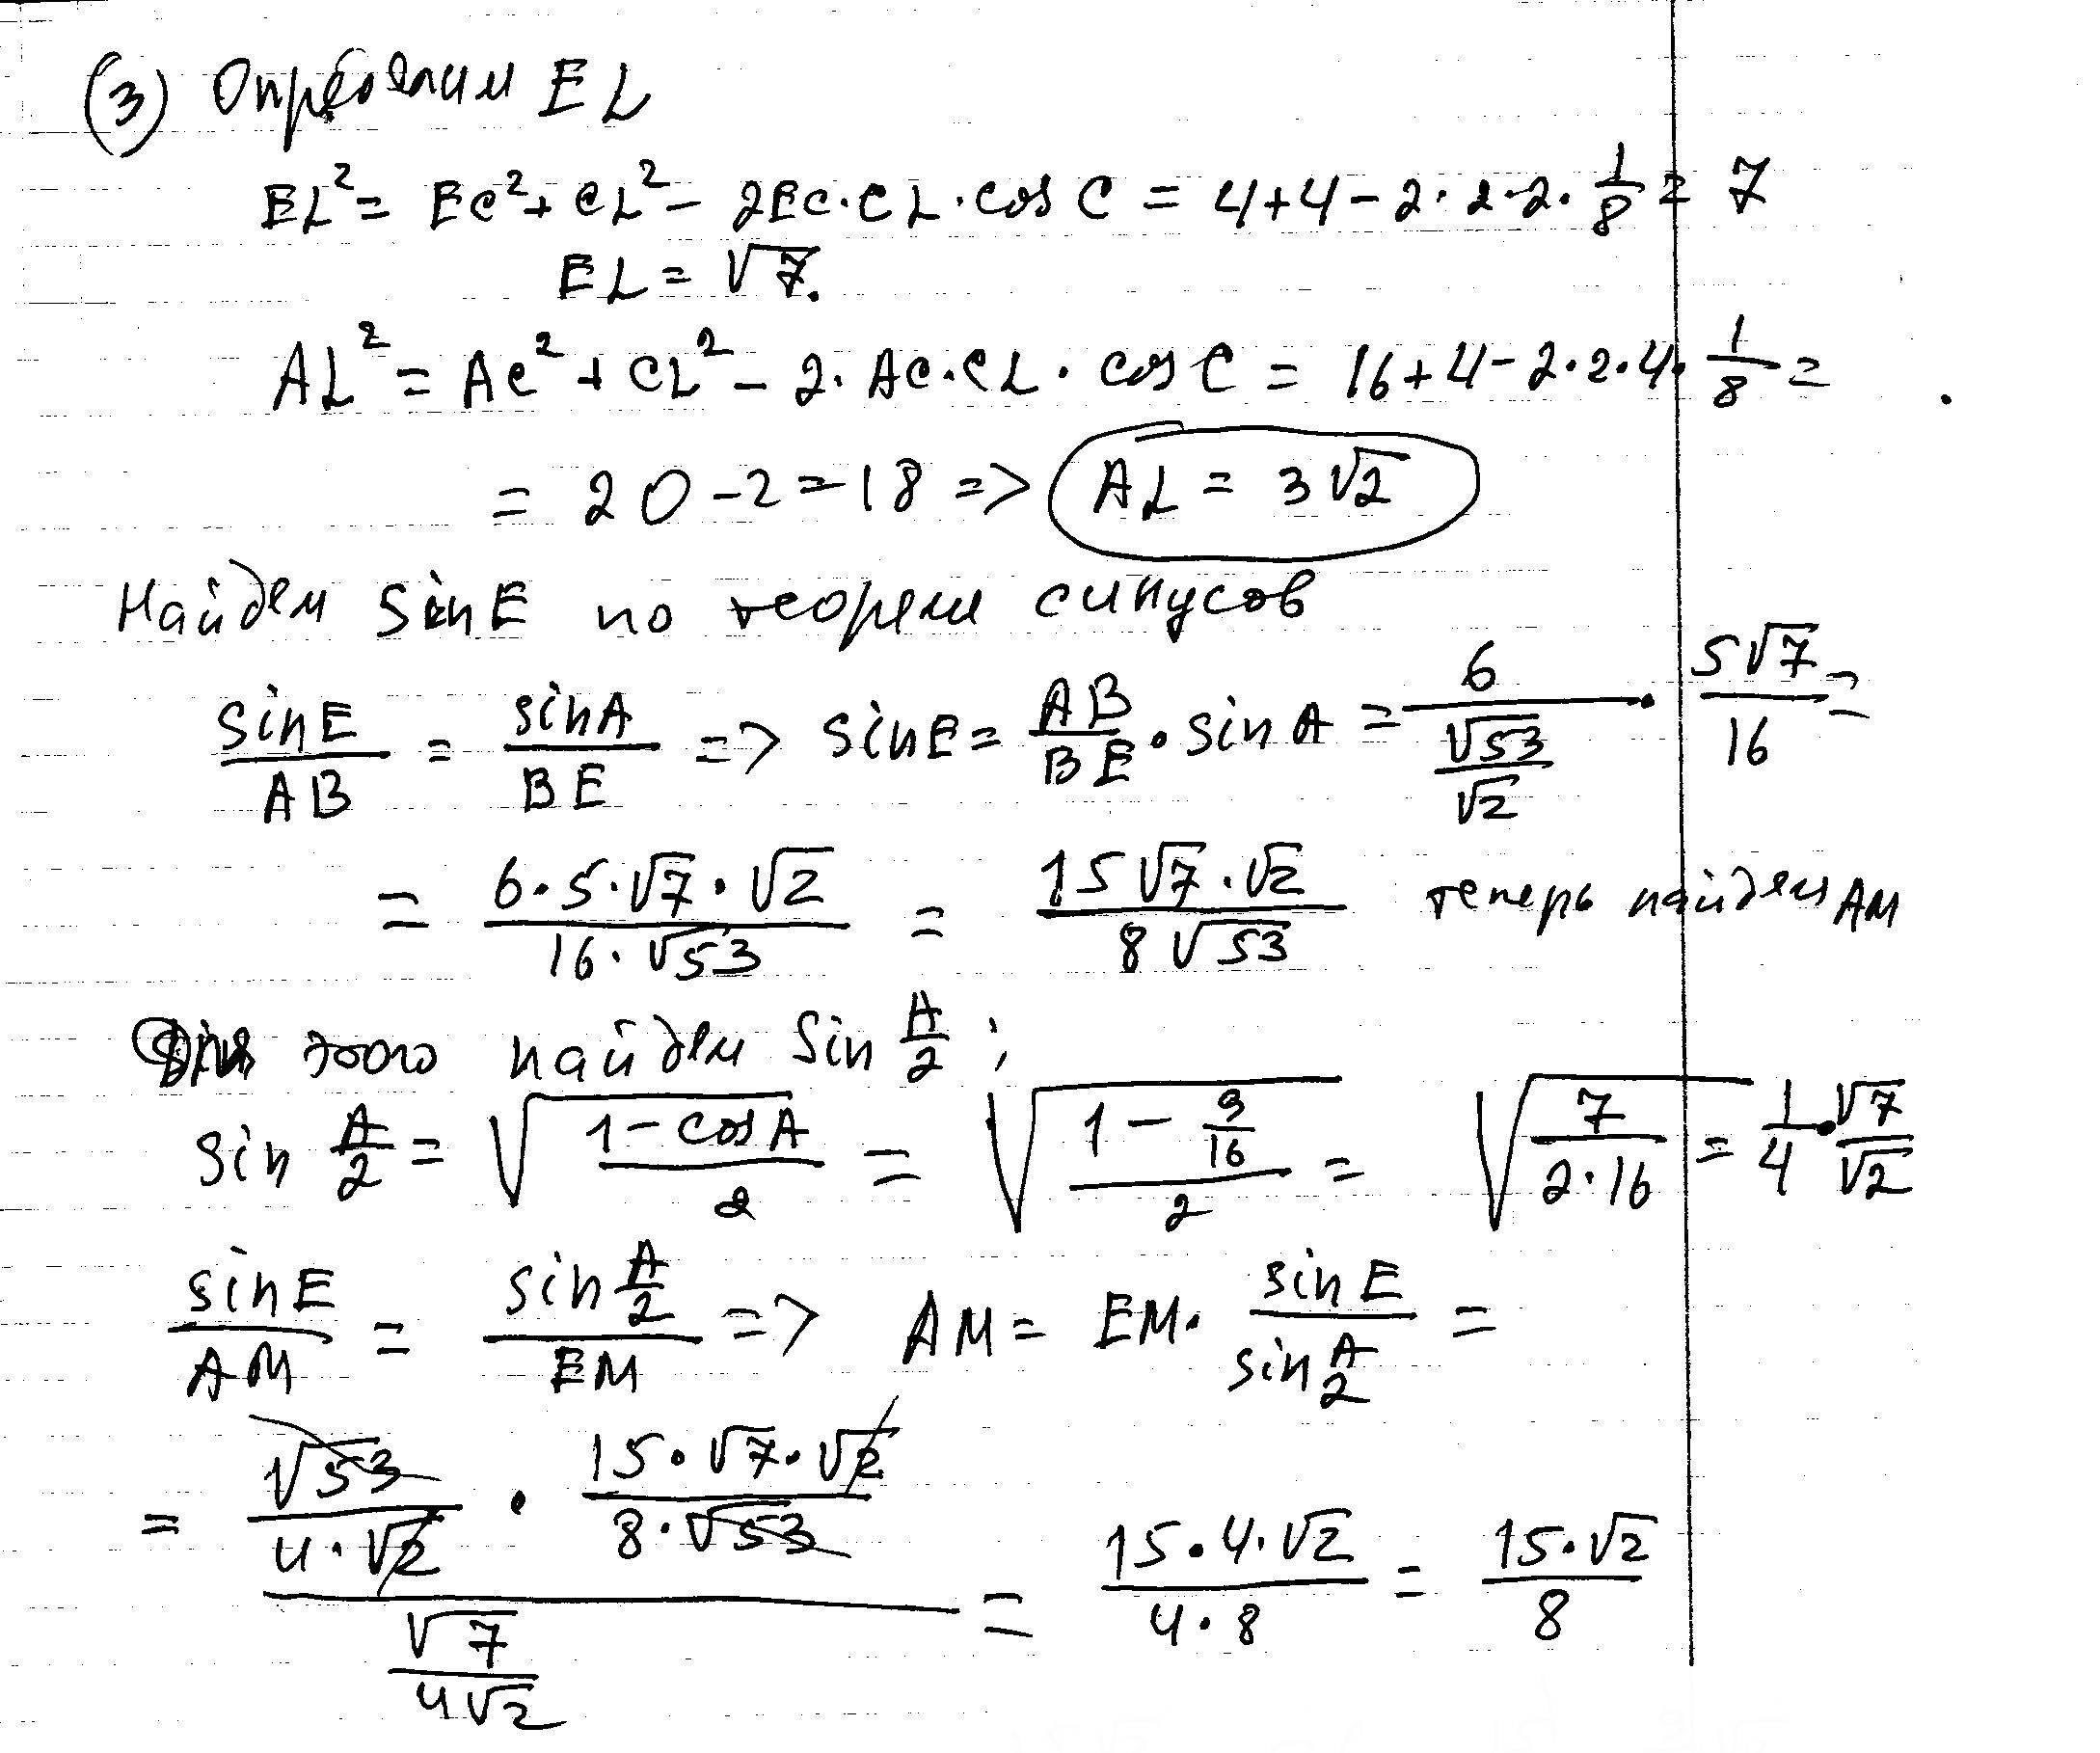 (3) Определим EL
EL² = EC² + CL² – 2EC·CL·cos C = 4+4–2·2·2·1/8 = 7
EL = √7.
AL² = AC² + CL² – 2·AC·CL·cos C = 16+4–2·2·4·1/8 =
= 20–2 = 18 => AL = 3√2
Найдем sin E по теореме синусов
sinE/AB = sinA/BE => sinE = AB/BE · sin A = 6/(√53/√2) · 5√7/16 =
= 6·5·√7·√2/(16·√53) = 15√7·√2/(8√53) теперь найдем AM
Для этого найдем sin A/2 ;
sin A/2 = √((1–cosA)/2) = √((1–9/16)/2) = √(7/(2·16)) = 1/4·√7/√2
sinE/AM = sin A/2/EM => AM = EM · sin E/sin A/2 =
= (√53/(4·√2) · 15·√7·√2/(8·√53))/(√7/(4√2)) = 15·4·√2/(4·8) = 15·√2/8